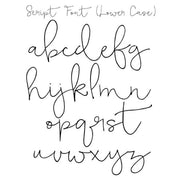 Script Font (Lower Case)
abcdefg
hijklmn
opqrst
uvwxyz